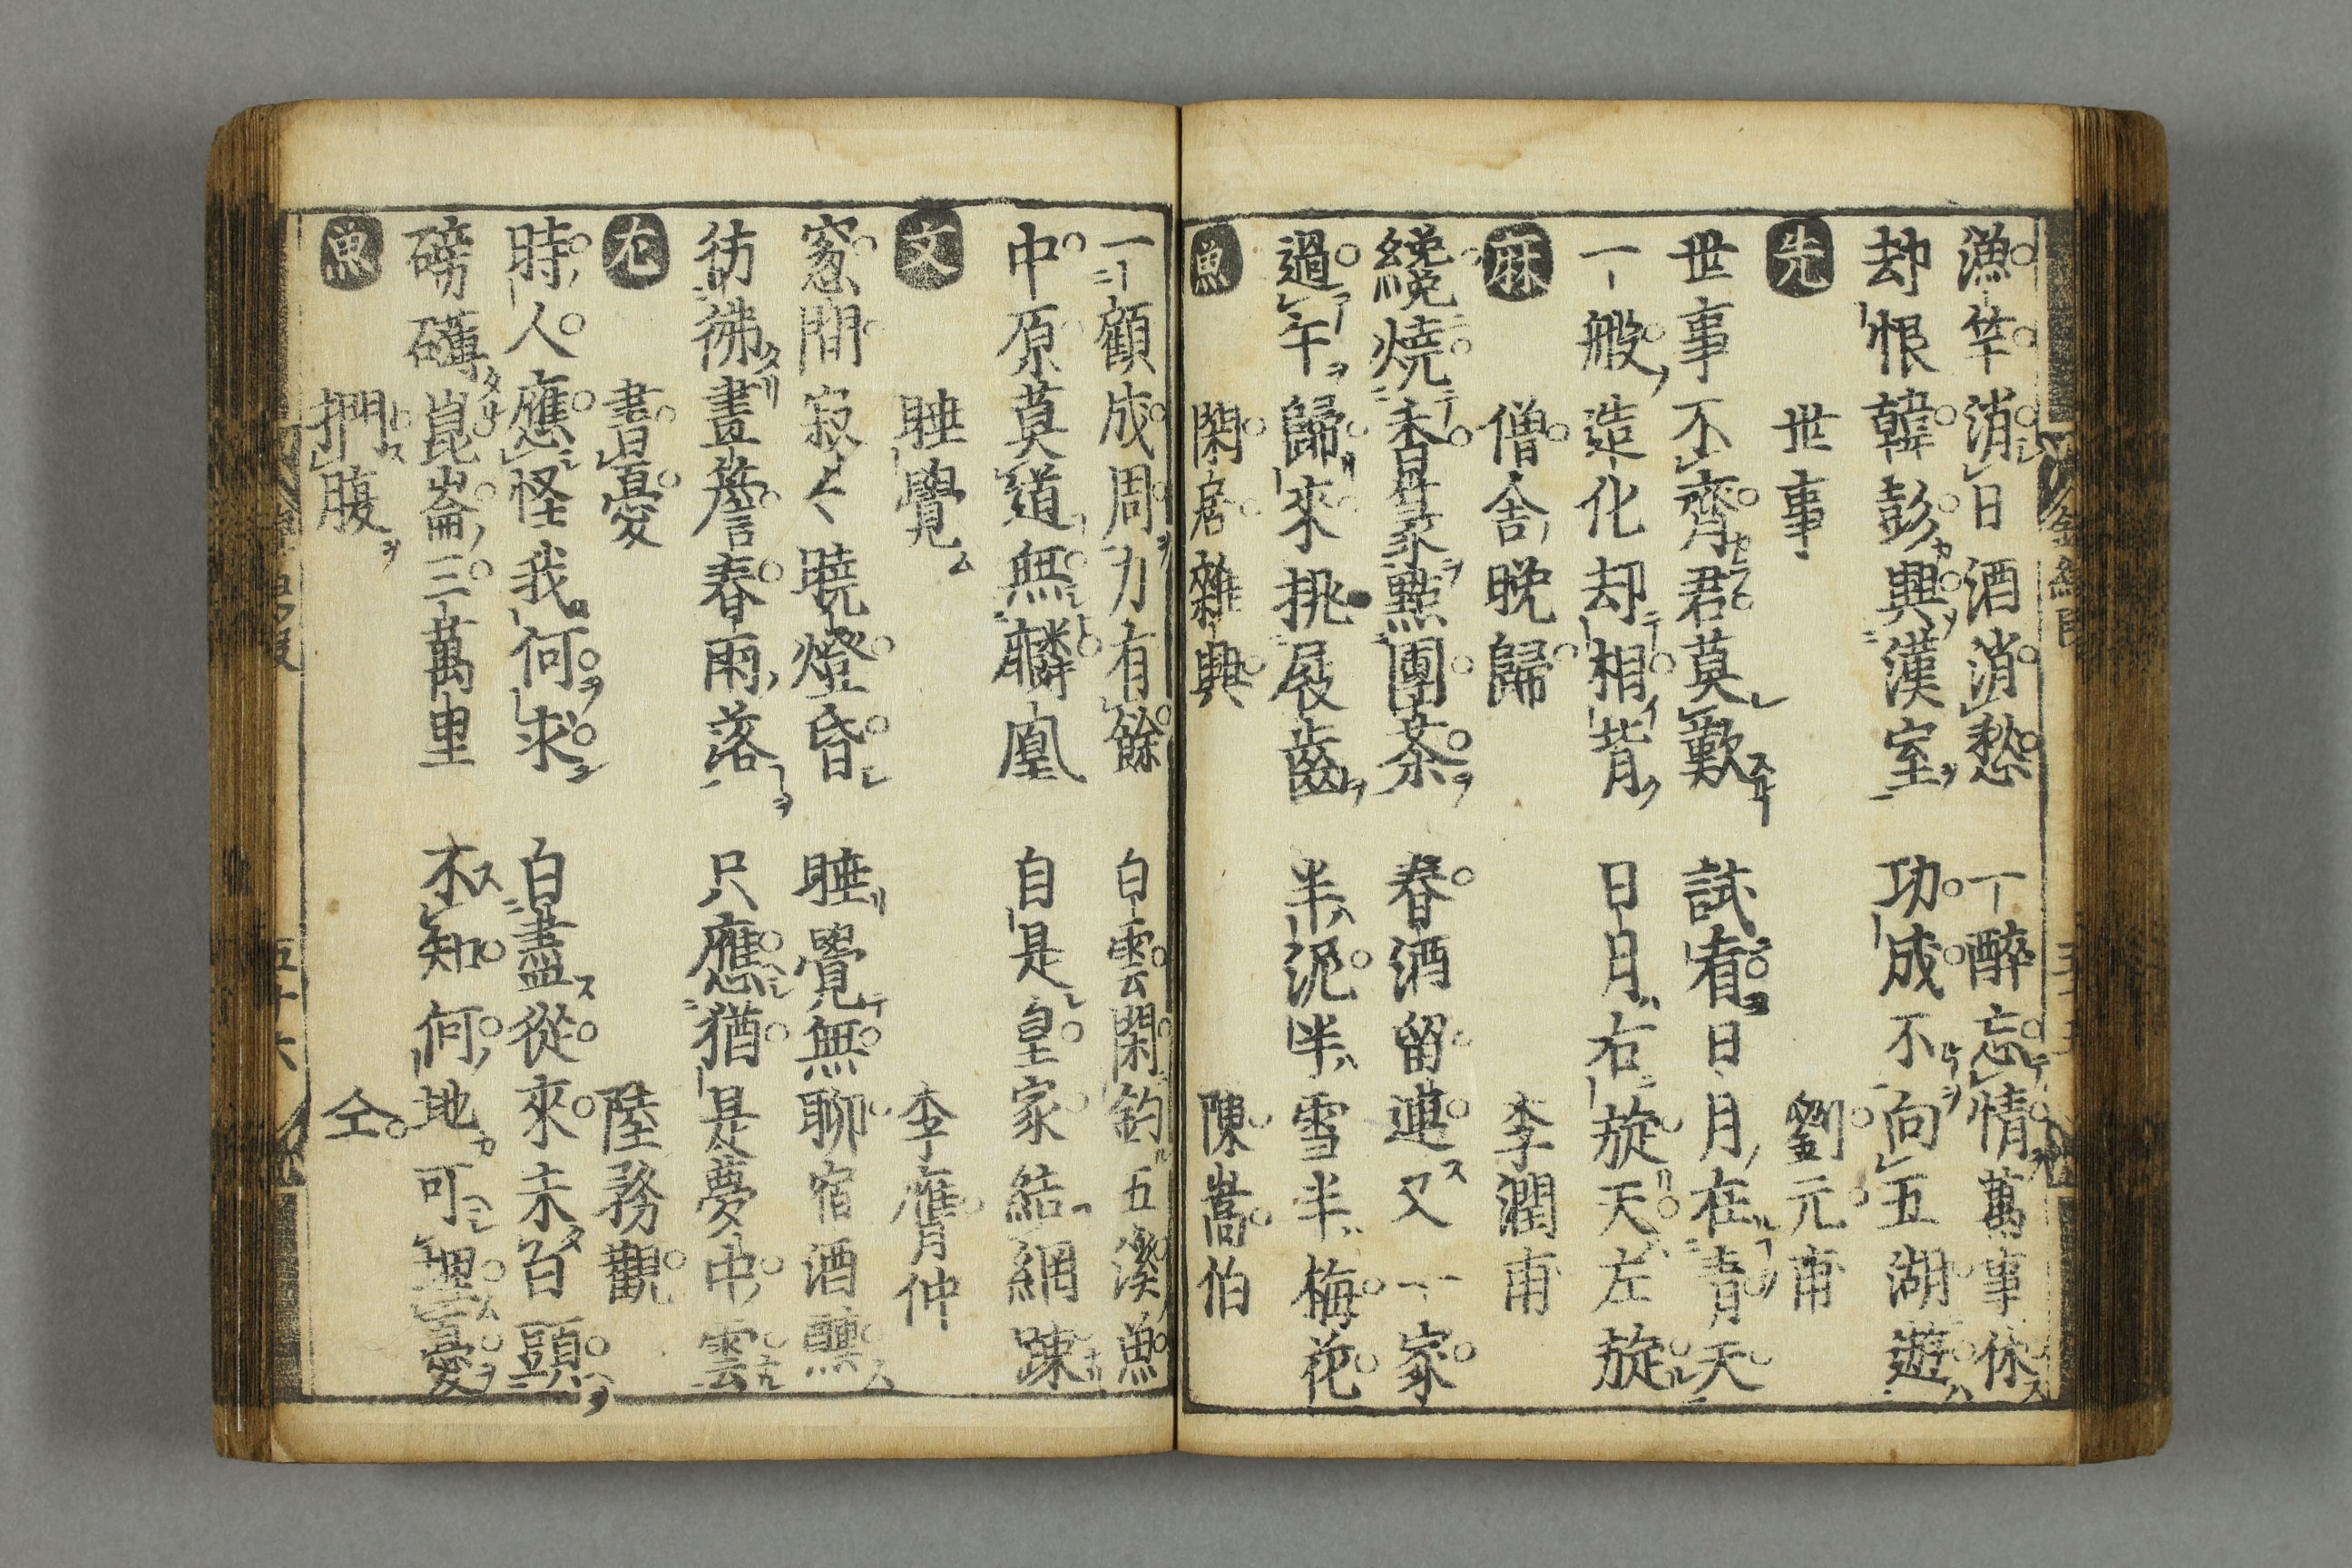 漁竿消日酒消愁　一醉忘情萬事休
却恨韓彭興漢室　功成不向五湖遊
先　世事　劉元甫
世事不齊君莫歎　試看日月在青天
一般造化却相背　日月右旋天左旋
麻　僧舎晩歸　李潤甫
纔燒香篆點團茶　春酒留連又一家
過午歸來挑屐齒　半泥半雪半梅花
魚　閑居雜興　陳嵩伯
一顧成周力有餘　白雲閑釣五溪魚
中原莫道無麟凰　自是皇家結網踈
文　睡覺　李膺仲
窓間寂〻曉燈昏　睡覺無聊宿酒醺
彷彿畫簷春雨落　只應猶是夢中雲
尤　書憂　陸務觀
時人應怪我何求　白盡從來未白頭
磅礴崑崙三萬里　不知何地可埋憂
魚　捫腹　仝
五十六